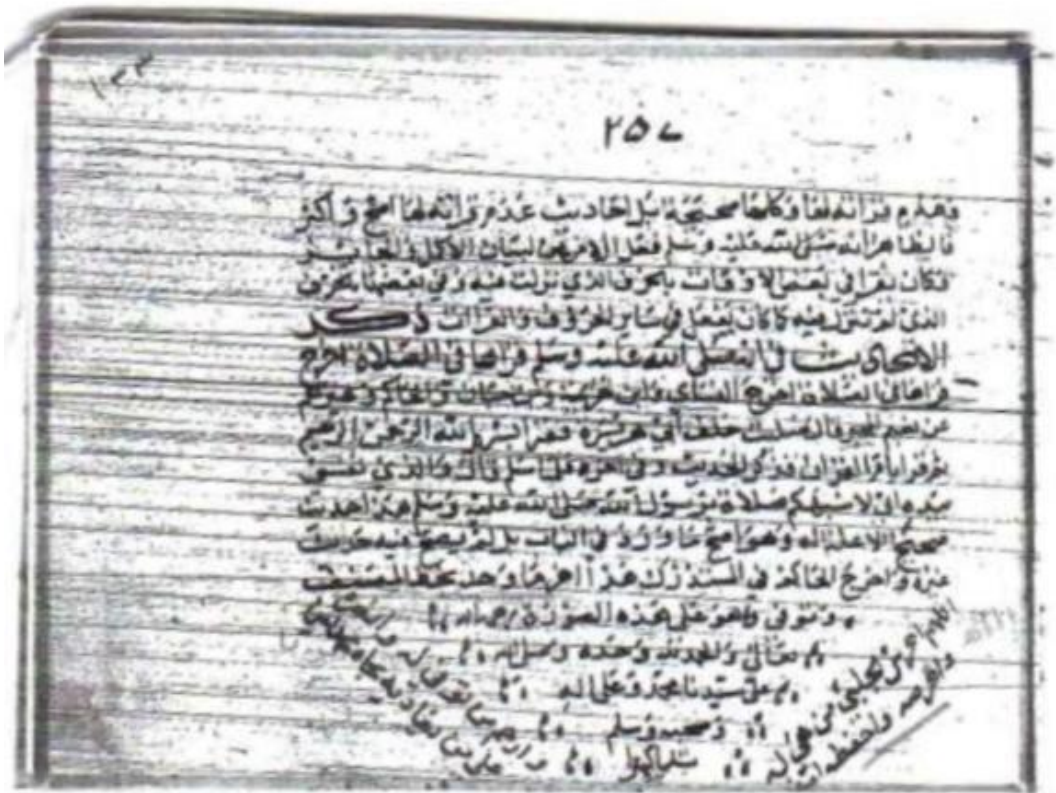 ١٣٣
٢٥٧
وهذه قراته لها وكلها صحيحة بل احاديث عدم قراته لها اصح واكثر
فالظاهر انه صلى الله عليه وسلم فعل الامرين لبيان الاكمل والجائز
فكان يقرا في بعض الاوقات بالحرف الذي نزلت فيه وفي بعضها بالحرف
الذي لم تنزل فيه كما كان يفعل في سائر الحروف والقرات ذكر
الاحاديث في انه صلى الله عليه وسلم قراها في الصلاة اخرج
قراها في الصلاة اخرج النسائي وابن خزيمة وابن حبان والحاكم وغيرهم
عن نعيم المجمر قال صليت خلف ابي هريرة فقرا بسم الله الرحمن الرحيم
ثم قرا بام القران فذكر الحديث وفي اخره فلما سلم قال والذي نفسي
بيده اني لاشبهكم صلاة برسول الله صلى الله عليه وسلم هذا حديث
صحيح لا علة له وهو اصح ما ورد في الباب بل لم يصح فيه حديث
غيره واخرج الحاكم في المستدرك هذا اخر ما وجد بخط المصنف
وتوفي وهو على هذه الصورة رحمه الله
تعالى والحمد لله وحده وصلى الله
على سيدنا محمد وعلى اله
وصحبه وسلم